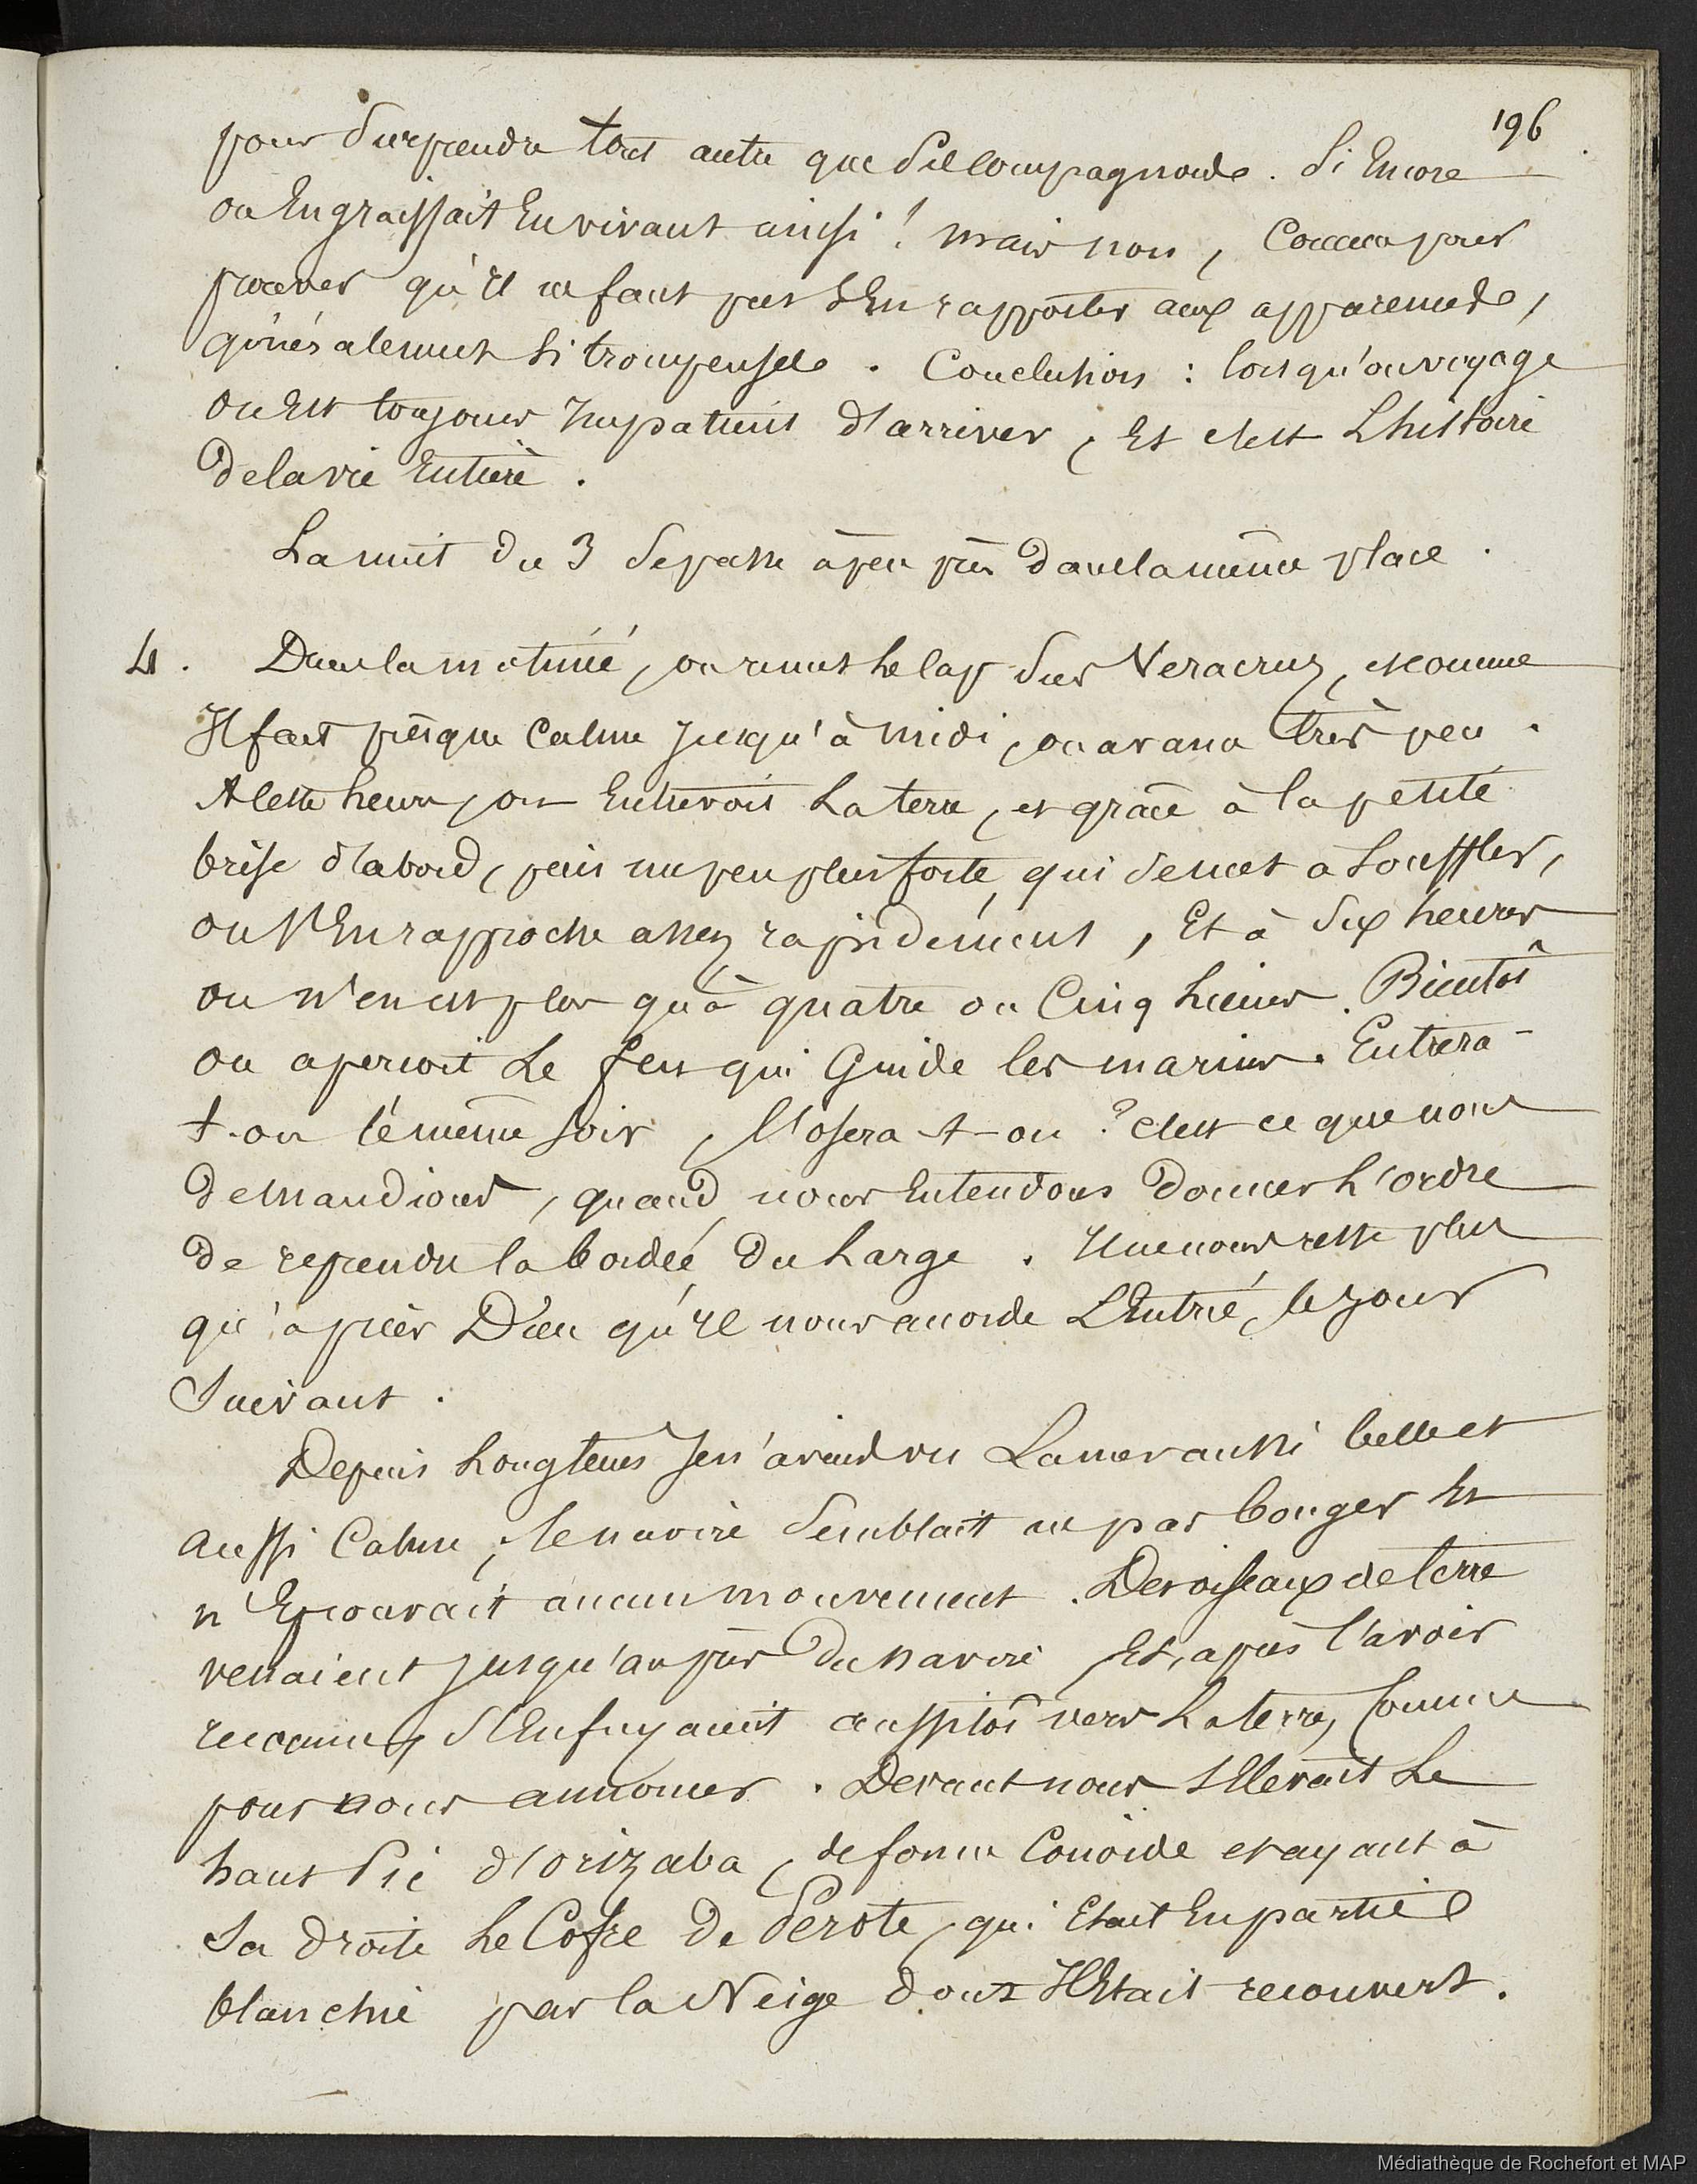 196
pour surprendre tout autre que ses compagnons. Si Encore
on Engraissait En vivant ainsi ! mais non, Comme pour
prouver qu'Il ne faut pas s'En rapporter aux apparences,
généralement si trompeuses. Conclusion : lorsqu'on voyage
on Est toujours Impatient d'arriver, Et c'est L'histoire
de la vie Entière.
La nuit du 3 se passe à peu près dans la même place.
4. Dans la matinée, on remet le cap sur Veracruz, et comme
Il fait presque Calme Jusqu'à midi, on avance très peu.
A cette heure, on Entrevoit La terre, et grâce à la petite
brise d'abord, puis un peu plus forte, qui se met à souffler,
on s'En rapproche assez rapidement, Et à six heures
on n'en est plus qu'à quatre ou Cinq lieues. Bientôt
on aperçoit Le feu qui Guide les marins. Entrera-
t-on le même soir, l'osera-t-on ? c'est ce que nous
demandions, quand nous Entendons donner L'ordre
de reprendre la bordée du Large. Il ne nous reste plus
qu'à prier Dieu qu'Il nous accorde L'Entrée, le jour
suivant.
Depuis Longtems Je n'avais vu La mer aussi belle et
aussi Calme ; le navire semblait ne pas bouger Et
n'Eprouvait aucun mouvement. Des oiseaux de terre
venaient jusqu'auprès du navire Et, après l'avoir
reconnu, s'Enfuyaient aussitôt vers La terre, comme
pour nous annoncer. Devant nous s'Elevait Le
haut Pic d'Orizaba, de forme Conoïde et ayant à
sa droite Le Cofre de Perote, qui Etait En partie
blanchie par la Neige dont Il Etait recouvert.
Médiathèque de Rochefort et MAP